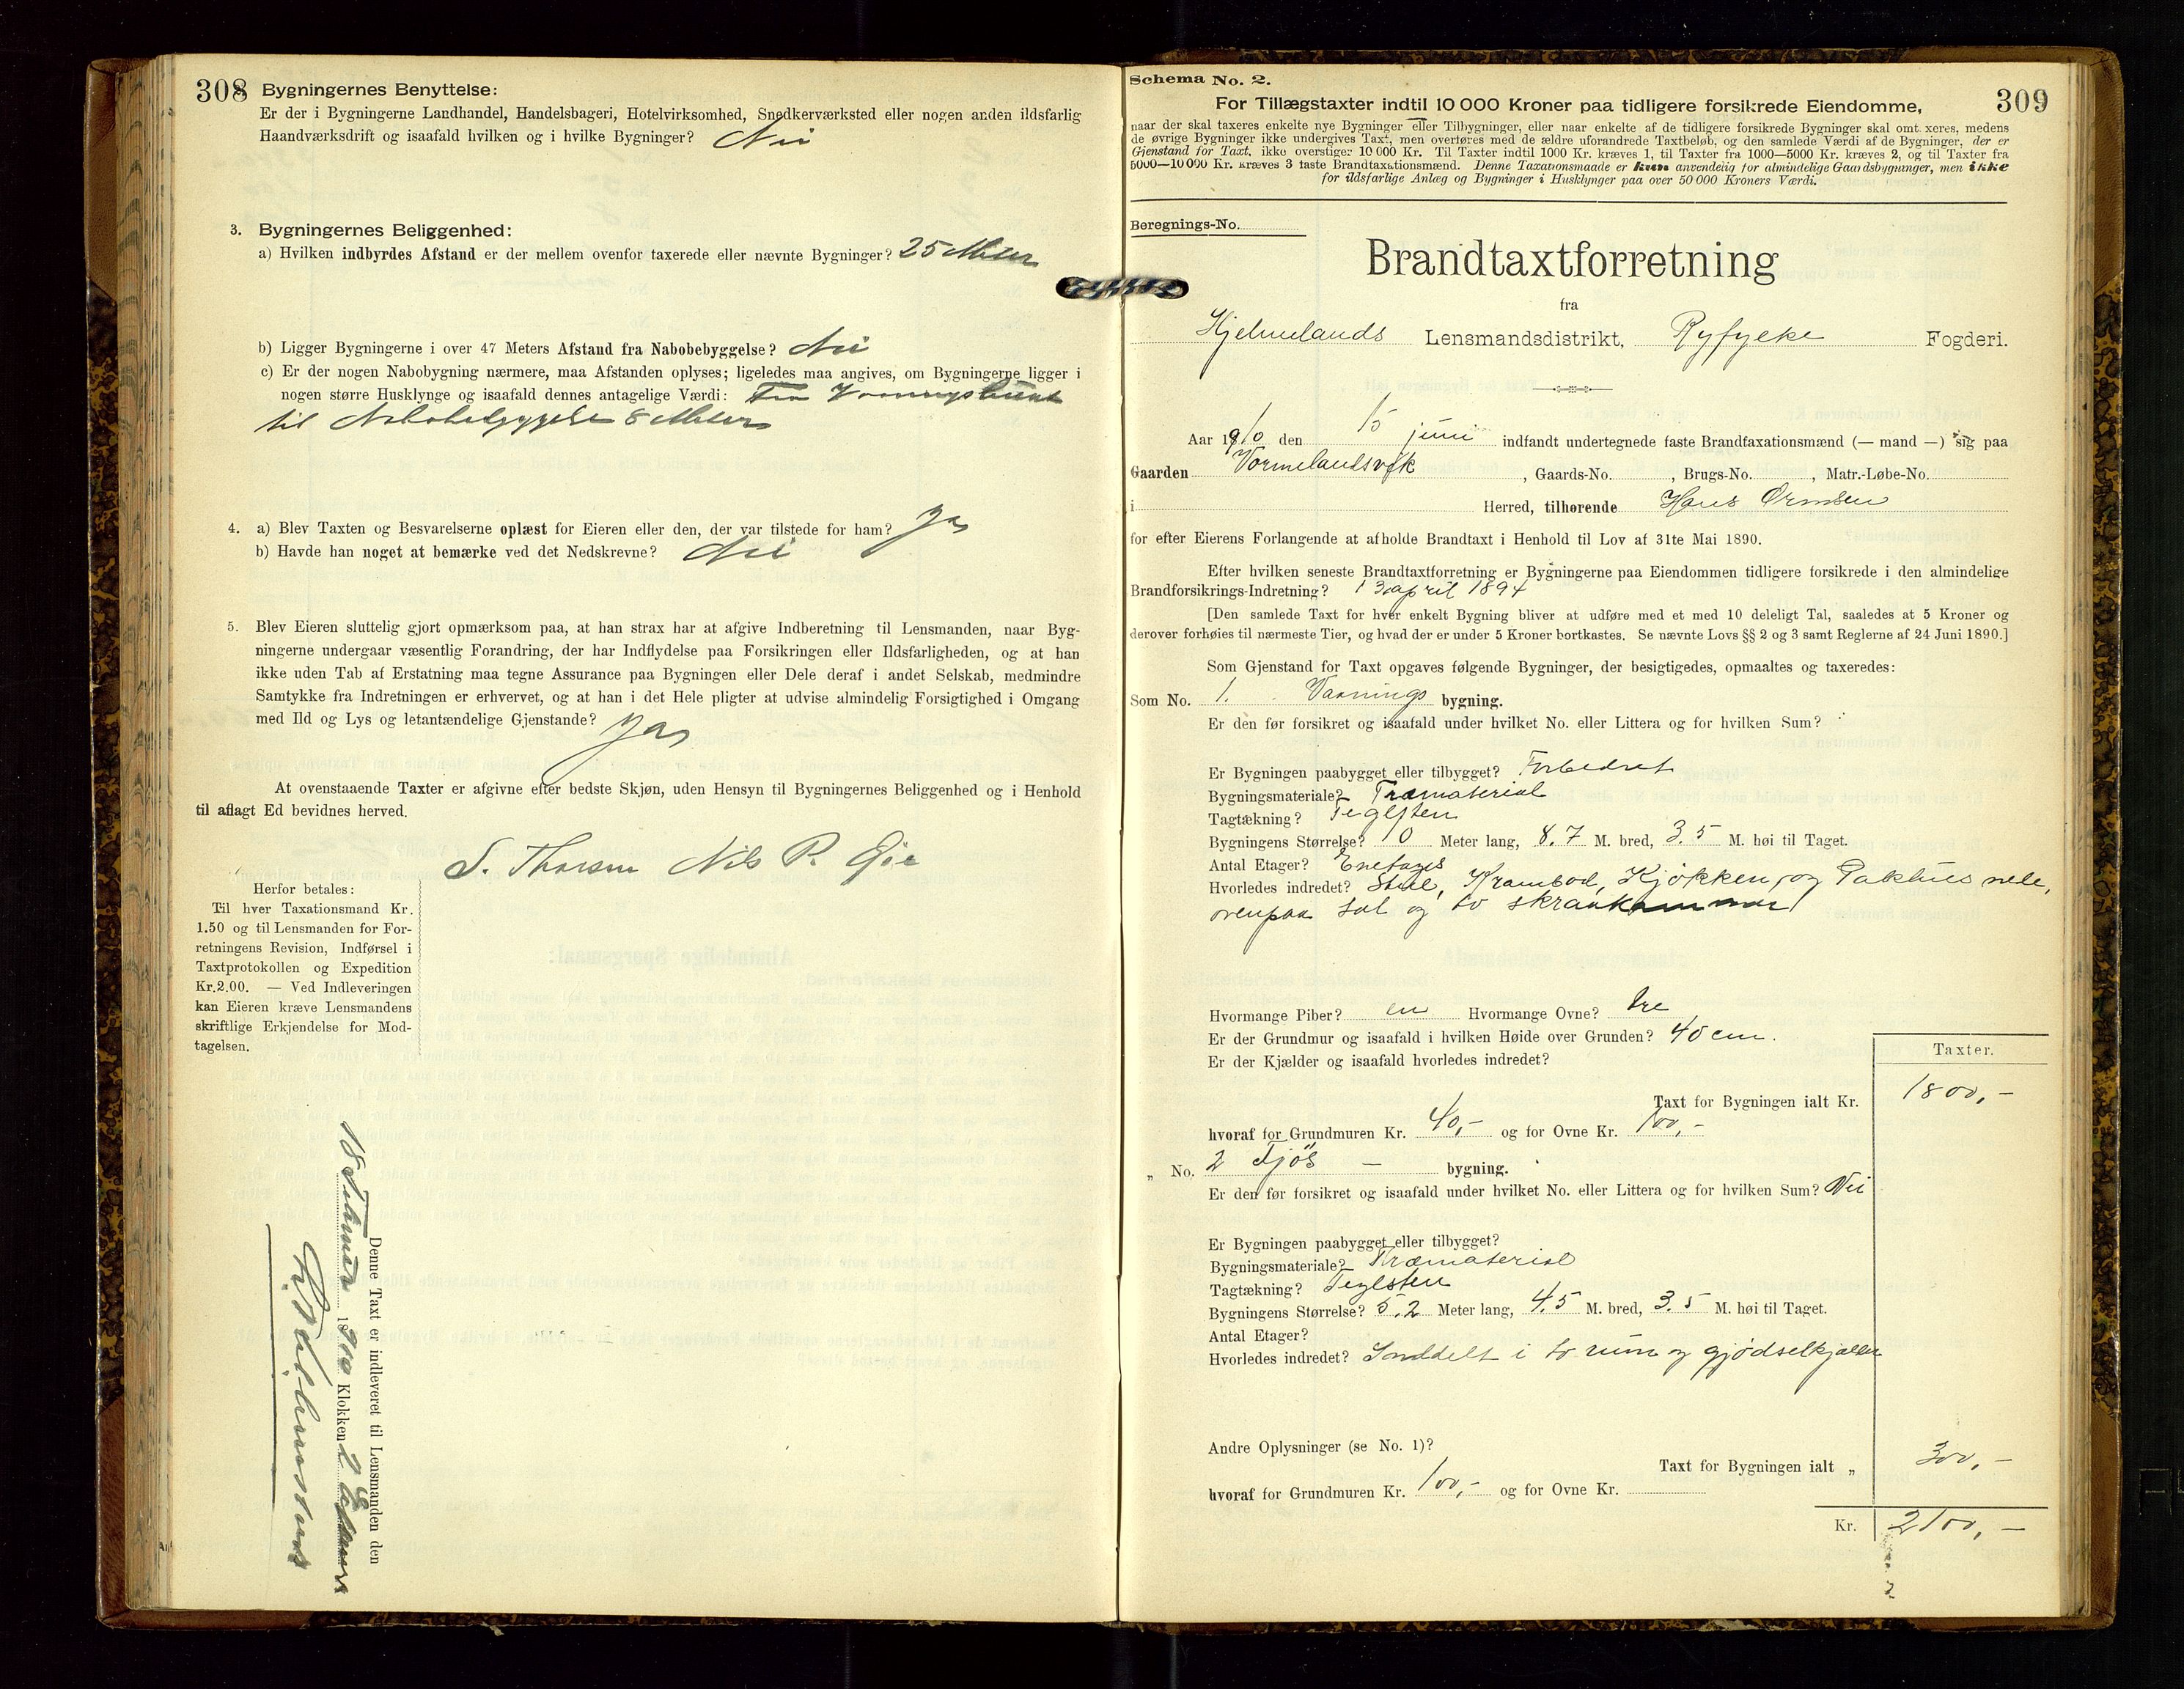 308
Bygningernes Benyttelse:
Er der i Bygningerne Landhandel, Handelsbageri, Hotelvirksomhed, Snedkerværksted eller nogen anden ildsfarlig
Haandværksdrift og isaafald hvilken og i hvilke Bygninger? Nei
3. Bygningernes Beliggenhed:
a) Hvilken indbyrdes Afstand er der mellem ovenfor taxerede eller nævnte Bygninger? 25 Meter
b) Ligger Bygningerne i over 47 Meters Afstand fra Nabobebyggelse? Nei
c) Er der nogen Nabobygning nærmere, maa Afstanden oplyses; ligeledes maa angives, om Bygningerne ligger i
nogen større Husklynge og isaafald dennes antagelige Værdi: Fra Vaaningshuset
til Nabobebyggelse 8 Meter
4. a) Blev Taxten og Besvarelserne oplæst for Eieren eller den, der var tilstede for ham? Ja
b) Havde han noget at bemærke ved det Nedskrevne? Nei
5. Blev Eieren sluttelig gjort opmærksom paa, at han strax har at afgive Indberetning til Lensmanden, naar Byg-
ningerne undergaar væsentlig Forandring, der har Indflydelse paa Forsikringen eller Ildsfarligheden, og at han
ikke uden Tab af Erstatning maa tegne Assurance paa Bygningen eller Dele deraf i andet Selskab, medmindre
Samtykke fra Indretningen er erhvervet, og at han i det Hele pligter at udvise almindelig Forsigtighed i Omgang
med Ild og Lys og letantændelige Gjenstande? Ja
At ovenstaaende Taxter er afgivne efter bedste Skjøn, uden Hensyn til Bygningernes Beliggenhed og i Henhold
til aflagt Ed bevidnes herved.
S. Thorsen Nils P. Øie
Herfor betales:
Til hver Taxationsmand Kr.
1.50 og til Lensmanden for For-
retningens Revision, Indførsel i
Taxtprotokollen og Expedition
Kr.2.00. — Ved Indleveringen
kan Eieren kræve Lensmandens
skriftlige Erkjendelse for Mod-
tagelsen.
Denne Taxt er indleveret til Lensmanden den
18 1910 Klokken 2
309
Schema No. 2.
For Tillægstaxter indtil 10 000 Kroner paa tidligere forsikrede Eiendomme,
naar der skal taxeres enkelte nye Bygninger eller Tilbygninger, eller naar enkelte af de tidligere forsikrede Bygninger skal omt xeres, medens
de øvrige Bygninger ikke undergives Taxt, men overføres med de ældre uforandrede Taxtbeløb, og den samlede Værdi af de Bygninger, der er
Gjenstand for Taxt, ikke overstiger 10 000 Kr. Til Taxter indtil 1000 Kr. kræves 1, til Taxter fra 1000—5000 Kr. kræves 2, og til Taxter fra
5000—10 000 Kr. kræves 3 faste Brandtaxationsmænd. Denne Taxationsmaade er kun anvendelig for almindelige Gaardsbygninger, men ikke
for ildsfarlige Anlæg og Bygninger i Husklynger paa over 50 000 Kroners Værdi.
Beregnings-No.
Brandtaxtforretning
fra
Hjelmelands Lensmandsdistrikt, Ryfylke Fogderi.
Aar 1910 den 15 juni indfandt undertegnede faste Brandtaxationsmænd (— mand —) sig paa
Gaarden Vormelandsvik, Gaards-No. , Brugs-No. , Matr.-Løbe-No.
i Herred, tilhørende Hans Ormsen
for efter Eierens Forlangende at afholde Brandtaxt i Henhold til Lov af 31te Mai 1890.
Efter hvilken seneste Brandtaxtforretning er Bygningerne paa Eiendommen tidligere forsikrede i den almindelige
Brandforsikrings-Indretning? 13 april 1894
[Den samlede Taxt for hver enkelt Bygning bliver at udføre med et med 10 deleligt Tal, saaledes at 5 Kroner og
derover forhøies til nærmeste Tier, og hvad der er under 5 Kroner bortkastes. Se nævnte Lovs §§ 2 og 3 samt Reglerne af 24 Juni 1890.]
Som Gjenstand for Taxt opgaves følgende Bygninger, der besigtigedes, opmaaltes og taxeredes:
Som No. 1. Vaanings bygning.
Er den før forsikret og isaafald under hvilket No. eller Littera og for hvilken Sum?
Er Bygningen paabygget eller tilbygget? Forbedret
Bygningsmateriale? Træmaterial
Tagtækning? Teglsten
Bygningens Størrelse? 10 Meter lang, 8.7 M. bred, 3.5 M. høi til Taget.
Antal Etager? Enetages
Hvorledes indredet? Stue, Krambod, Kjøkken, og Pakhus nede,
ovenpaa sal og to skraakammer
Hvormange Piber? en Hvormange Ovne? tre
Er der Grundmur og isaafald i hvilken Høide over Grunden? 40 cm.
Er der Kjælder og isaafald hvorledes indredet?
Taxter.
Taxt for Bygningen ialt Kr. 1800,-
hvoraf for Grundmuren Kr. 40,- og for Ovne Kr. 100,-
„ No. 2 Fjös — bygning.
Er den før forsikret og isaafald under hvilket No. eller Littera og for hvilken Sum? Nei
Er Bygningen paabygget eller tilbygget?
Bygningsmateriale? Træmaterial
Tagtækning? Teglsten
Bygningens Størrelse? 5.2 Meter lang, 4.5 M. bred, 3.5 M. høi til Taget.
Antal Etager?
Hvorledes indredet? Inddelt i to rum og gjødselkjælder
Andre Oplysninger (se No. 1)?
Taxt for Bygningen ialt „ 300,-
hvoraf for Grundmuren Kr. 100,- og for Ovne Kr.
Kr. 2100,-